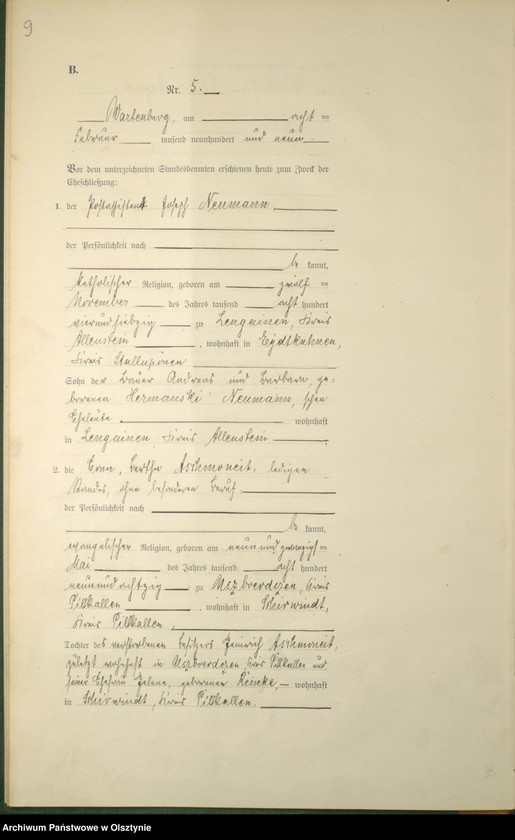 9
B.
Nr. 5.
Wartenberg, am acht ten
Februar tausend neunhundert und neun
Vor dem unterzeichneten Standesbeamten erschienen heute zum Zweck der
Eheschließung:
1. der Postassistent Joseph Neumann
der Persönlichkeit nach
be kannt,
katholischer Religion, geboren am zwölf ten
November des Jahres tausend acht hundert
vierundsiebzig zu Lengainen, Kreis
Allenstein, wohnhaft in Eydtkuhnen,
Kreis Stallupönen
Sohn der Bauer Andreas und Barbara, ge-
borenen Hermanski Neumann, schen
Eheleute wohnhaft
in Lengainen, Kreis Allenstein
2. die Erna, Bertha Aschmoneit, ledigen
Standes, ohne besonderen Beruf,
der Persönlichkeit nach
be kannt,
evangelischer Religion, geboren am neunundzwanzigs ten
Mai des Jahres tausend acht hundert
neunundachtzig zu Uszberdszen, Kreis
Pillkallen, wohnhaft in Schirwindt,
Kreis Pillkallen,
Tochter des verstorbenen Besitzers Heinrich Aschmoneit,
zuletzt wohnhaft in Uszberdszen Kreis Pillkallen und
seiner Ehefrau Helene, geborenen Reincke, wohnhaft
in Schirwindt, Kreis Pillkallen.
Archiwum Państwowe w Olsztynie